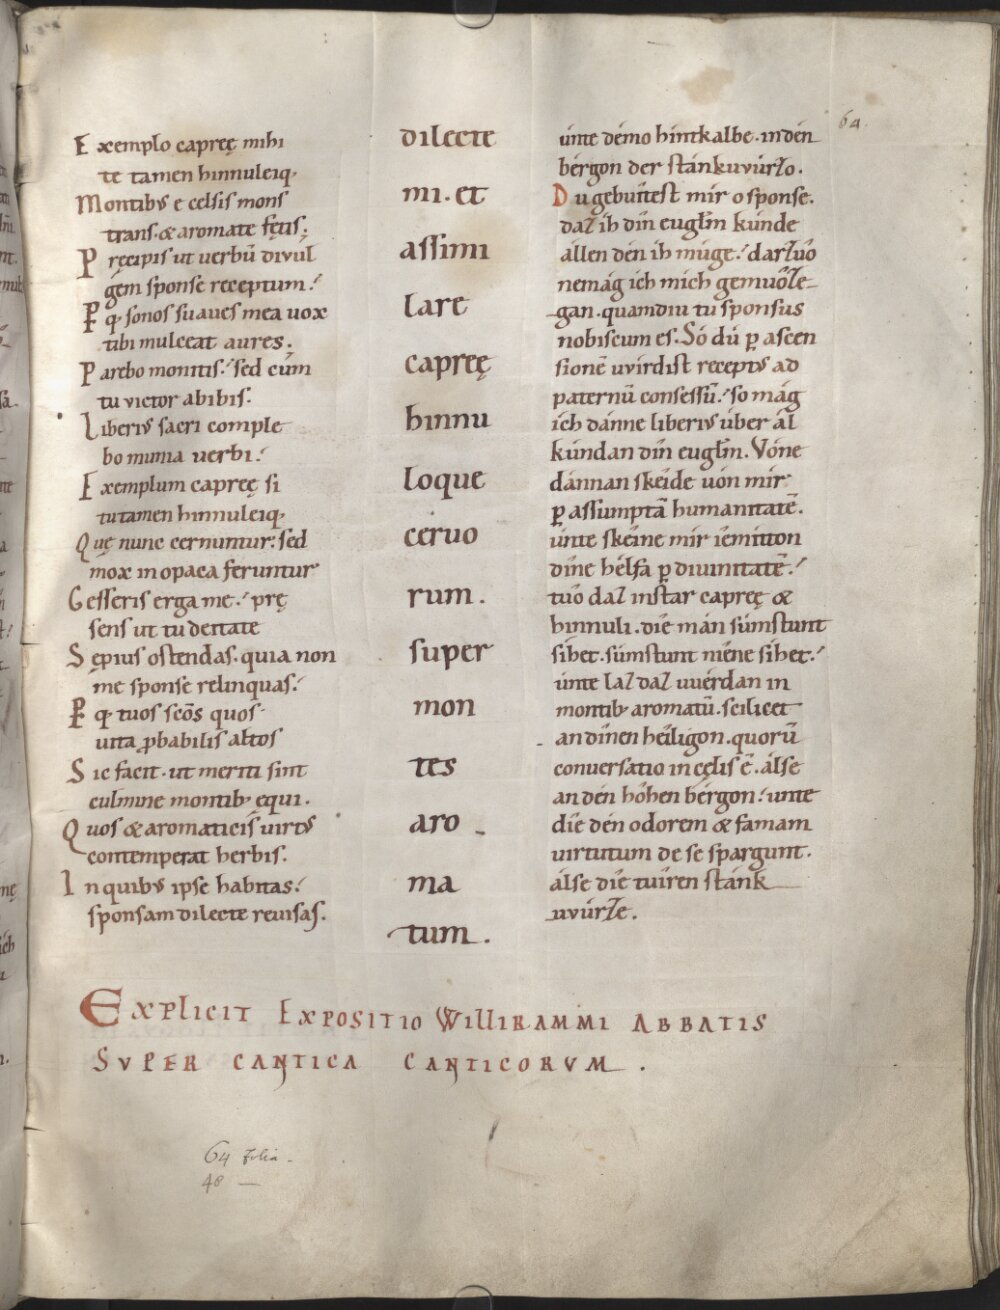 64.
Exemplo capreę mihi
te tamen hinnuleiq;
Montibꝰ e celsis mons
trans. & aromate fętis;
Pręcipis ut uerbū divúl
gem sponse receptum.
Pꝑq; sonos suaues mea uox
tibi mulceat aures.
Parebo monitis. sed cúm
tu victor abibis.
Liberiꝰ sacri comple
bo munia uerbi.
Exemplum capreę si
tu tamen hinnuleiq;
Quę nunc cernuntur. sed
mox in opaca feruntur
Gesseris erga me. prę
sens ut tu deitate
Sepius ostendas. quia non
me sponse relinquas.
Pꝑq; tuos scōs quos
uita ꝓbabilis altos
Sic facit. ut meriti sint
culmine montib; ęqui.
Quos & aromaticis uirtꝰ
contemperat herbis.
In quibꝰ ipse habitas.
sponsam dilecte reuisas.
dilecte
mi. et
assimi
lare
capreę
hinnu
loque
ceruo
rum.
super
mon
tes
aro
ma
tum.
únte démo hintkalbe. in dén
bérgon der stánkuvúrzo.
Du gebūtest mir o sponse.
daz ih dīn euglīm kúnde
állen dén ih múge. darzuô
nemág ich mich gemuôze
gan. quamdiu tu sponsus
nobiscum es. Só dú ꝑ ascen
sionē uvirdist receptꝰ ad
paternū consessū. so mág
ích dánne liberiꝰ úber ál
kúndan dīn euglīm. Vóne
dánnan skéide uón mír
ꝑ assumptā humanitatē.
únte skéine mir íemitton
díne hélfa ꝑ divinitatē.
tuô daz instar capreę &
hinnuli. díe mán súmstunt
síhet. súmstunt níene síhet.
únte laz daz uuérdan in
montib; aromatū. scilicet
an dínen héiligon. quorū
conversatio in cęlis ē. álse
an dén hóhen bérgon. unte
díe dén odorem & famam
uirtutum de se spargunt.
álse díe túiren stánk
uvúrze.
Explicit Expositio Willirammi Abbatis
Svper Cantica Canticorvm.
64 folia.
48 —